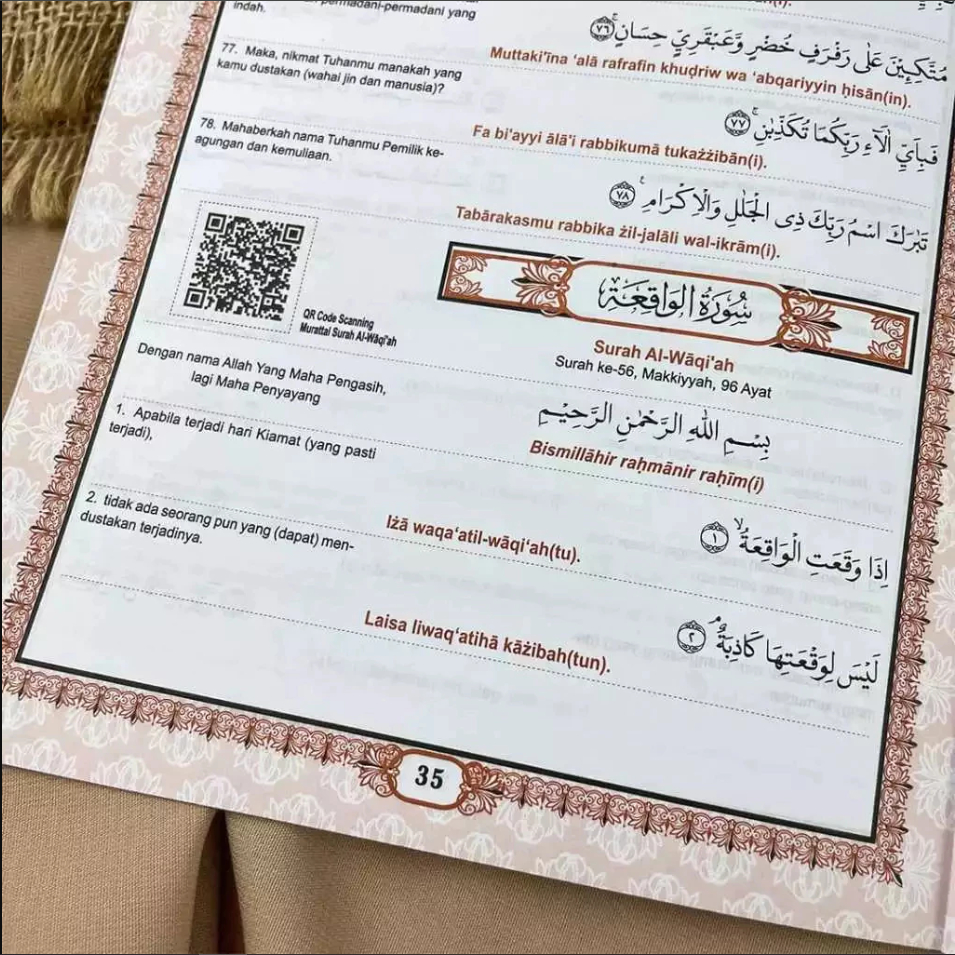 permadani-permadani yang
indah.
مُتَّكِـِٕيْنَ عَلٰى رَفْرَفٍ خُضْرٍ وَّعَبْقَرِيٍّ حِسَانٍۚ ٧٦
Muttaki'īna ‘alā rafrafin khuḍriw wa ‘abqariyyin ḥisān(in).
77. Maka, nikmat Tuhanmu manakah yang
kamu dustakan (wahai jin dan manusia)?
فَبِاَيِّ اٰلَاۤءِ رَبِّكُمَا تُكَذِّبٰنِۚ ٧٧
Fa bi'ayyi ālā'i rabbikumā tukażżibān(i).
78. Mahaberkah nama Tuhanmu Pemilik ke-
agungan dan kemuliaan.
تَبٰرَكَ اسْمُ رَبِّكَ ذِى الْجَلٰلِ وَالْاِكْرَامِࣖ ٧٨
Tabārakasmu rabbika żil-jalāli wal-ikrām(i).
QR Code Scanning
Murattal Surah Al-Wāqi'ah
سُوْرَةُ الْوَاقِعَةِ
Surah Al-Wāqi'ah
Surah ke-56, Makkiyyah, 96 Ayat
Dengan nama Allah Yang Maha Pengasih,
lagi Maha Penyayang
بِسْمِ اللّٰهِ الرَّحْمٰنِ الرَّحِيْمِ
Bismillāhir raḥmānir raḥīm(i)
1. Apabila terjadi hari Kiamat (yang pasti
terjadi),
اِذَا وَقَعَتِ الْوَاقِعَةُۙ ١
Iżā waqa‘atil-wāqi‘ah(tu).
2. tidak ada seorang pun yang (dapat) men-
dustakan terjadinya.
لَيْسَ لِوَقْعَتِهَا كَاذِبَةٌۘ ٢
Laisa liwaq‘atihā kāżibah(tun).
35